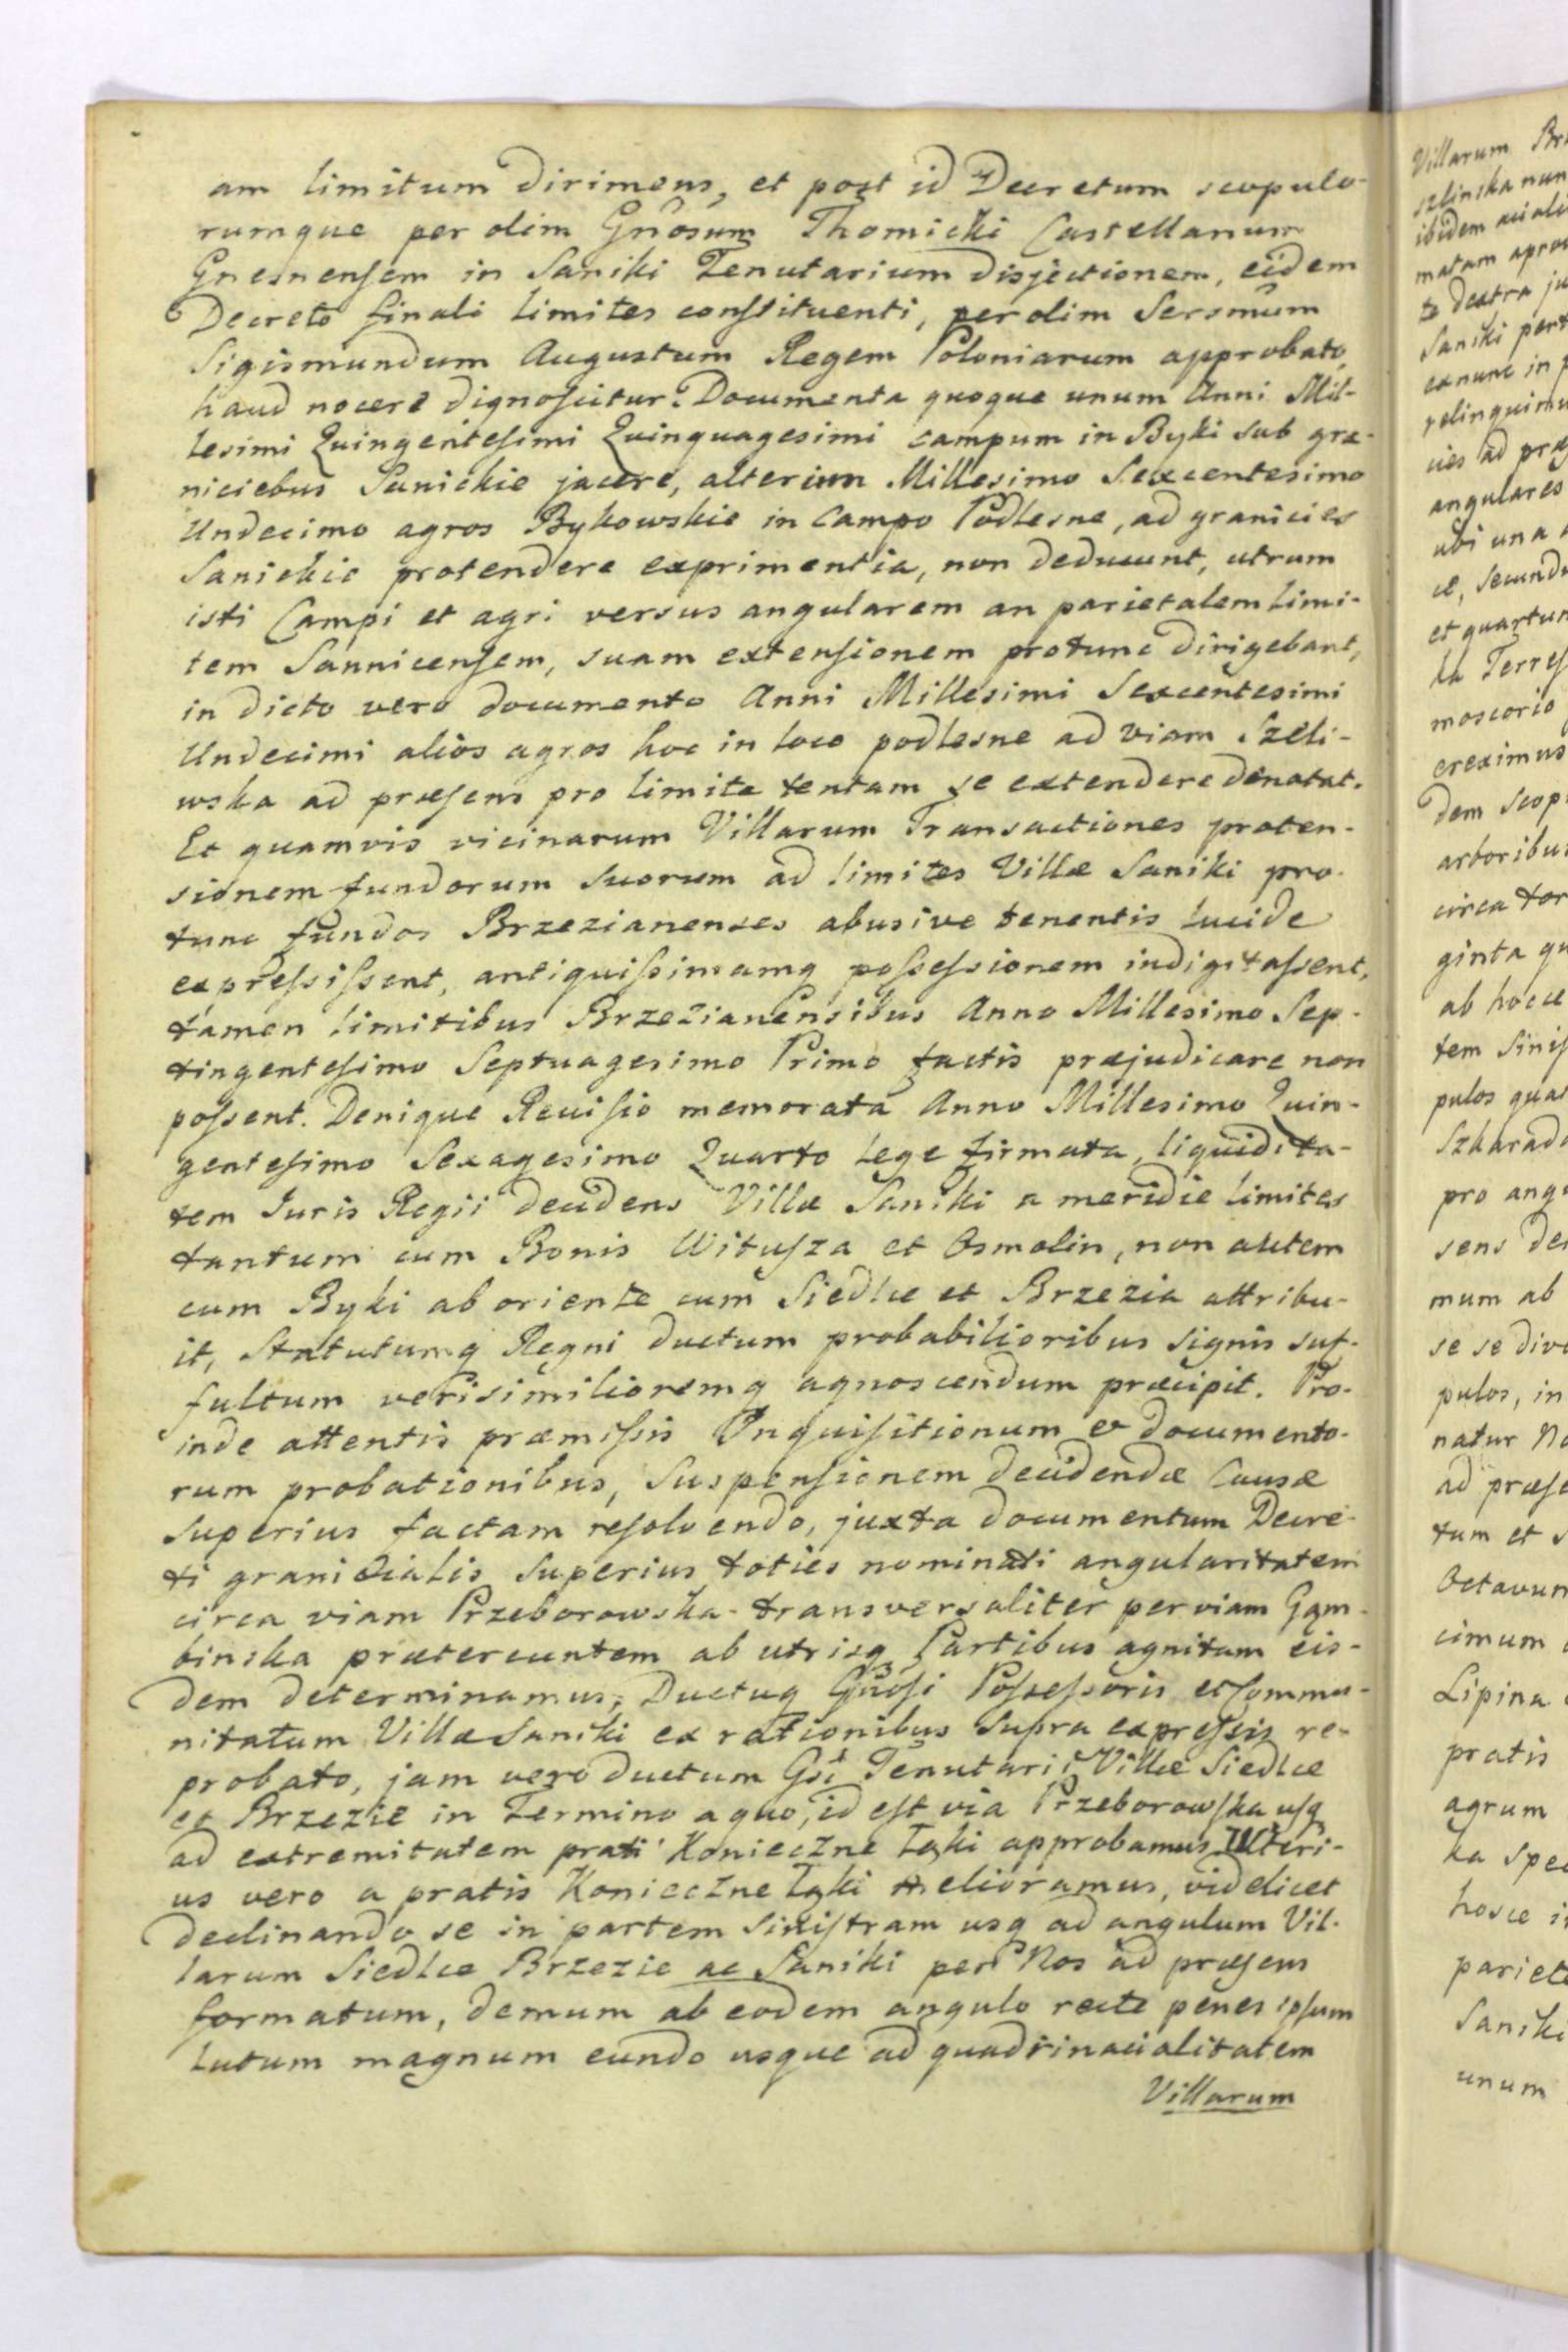 am limitum dirimens, et post id Decretum scopulo-
rumque per olim Gnosum Thomicki Castellanum
Gnesnensem in Saniki Tenutarium disjectionem, eidem
Decreto finali limites constituenti, per olim Sersmum
Sigismundum Augustum Regem Poloniarum approbato,
haud nocere dignoscitur. Documenta quoque unum Anni Mil-
lesimi Quingentesimi Quinquagesimi campum in Byki sub gra-
niciebus Sanickie jacere, alterum Millesimo Sexcentesimo
Undecimo agros Bykowskie in Campo Podlesne, ad granicies
Sanickie protendere exprimentia, non deducunt, utrum
isti Campi et agri versus angularem an parietalem limi-
tem Sannicensem, suam extensionem protunc dirigebant,
in dicto vero documento Anni Millesimi Sexcentesimi
Undecimi alios agros hoc in loco podlesne ad viam Szeli-
wska ad præsens pro limite tentam se extendere denotat.
Et quamvis vicinarum Villarum Transactiones proten-
sionem fundorum suorum ad limites Villæ Saniki pro-
tunc fundos Brzezianenses abusive tenentis lucide
expressissent, antiquissimamq possessionem indigitassent,
tamen limitibus Brzezianensibus Anno Millesimo Sep-
tingentesimo Septuagesimo Primo factis præjudicare non
possent. Denique Revisio memorata Anno Millesimo Quin-
gentesimo Sexagesimo Quarto lege firmata, liquidita-
tem Juris Regii decidens Villæ Saniki a meridie limites
tantum cum Bonis Witusza et Osmolin, non autem
cum Byki ab oriente cum Siedlce et Brzezia attribu-
it, Statutumq Regni ductum probabilioribus signis suf-
fultum verisimilioremq agnoscendum præcipit. Pro-
inde attentis præmissis Inquisitionum et documento-
rum probationibus, Suspensionem decidendæ Causæ
superius factam resolvendo, juxta documentum Decre-
ti granicialis superius toties nominati angularitatem
circa viam Przeborowska transversaliter per viam Gąm-
binska prætereuntem ab utrisq Partibus agnitam eis-
dem determinamus, Ductuq Gnosi Possessoris et Commu-
nitatum Villæ Saniki ex rationibus supra expressis re-
probato, jam vero ductum Gsi Tenutarii Villæ Siedlce
et Brzezie in Termino a quo, id est via Przeborowska usq
ad extremitatem prati Konieczne Łąki approbamus Ulteri-
us vero a pratis Konieczne Łąki melioramus, videlicet
declinando se in partem sinistram usq ad angulum Vil-
larum Siedlce Brzezie ac Saniki per Nos ad præsens
formatum, demum ab eodem angulo recte penes ipsum
lutum magnum eundo usque ad quadrinacialitatem
Villarum